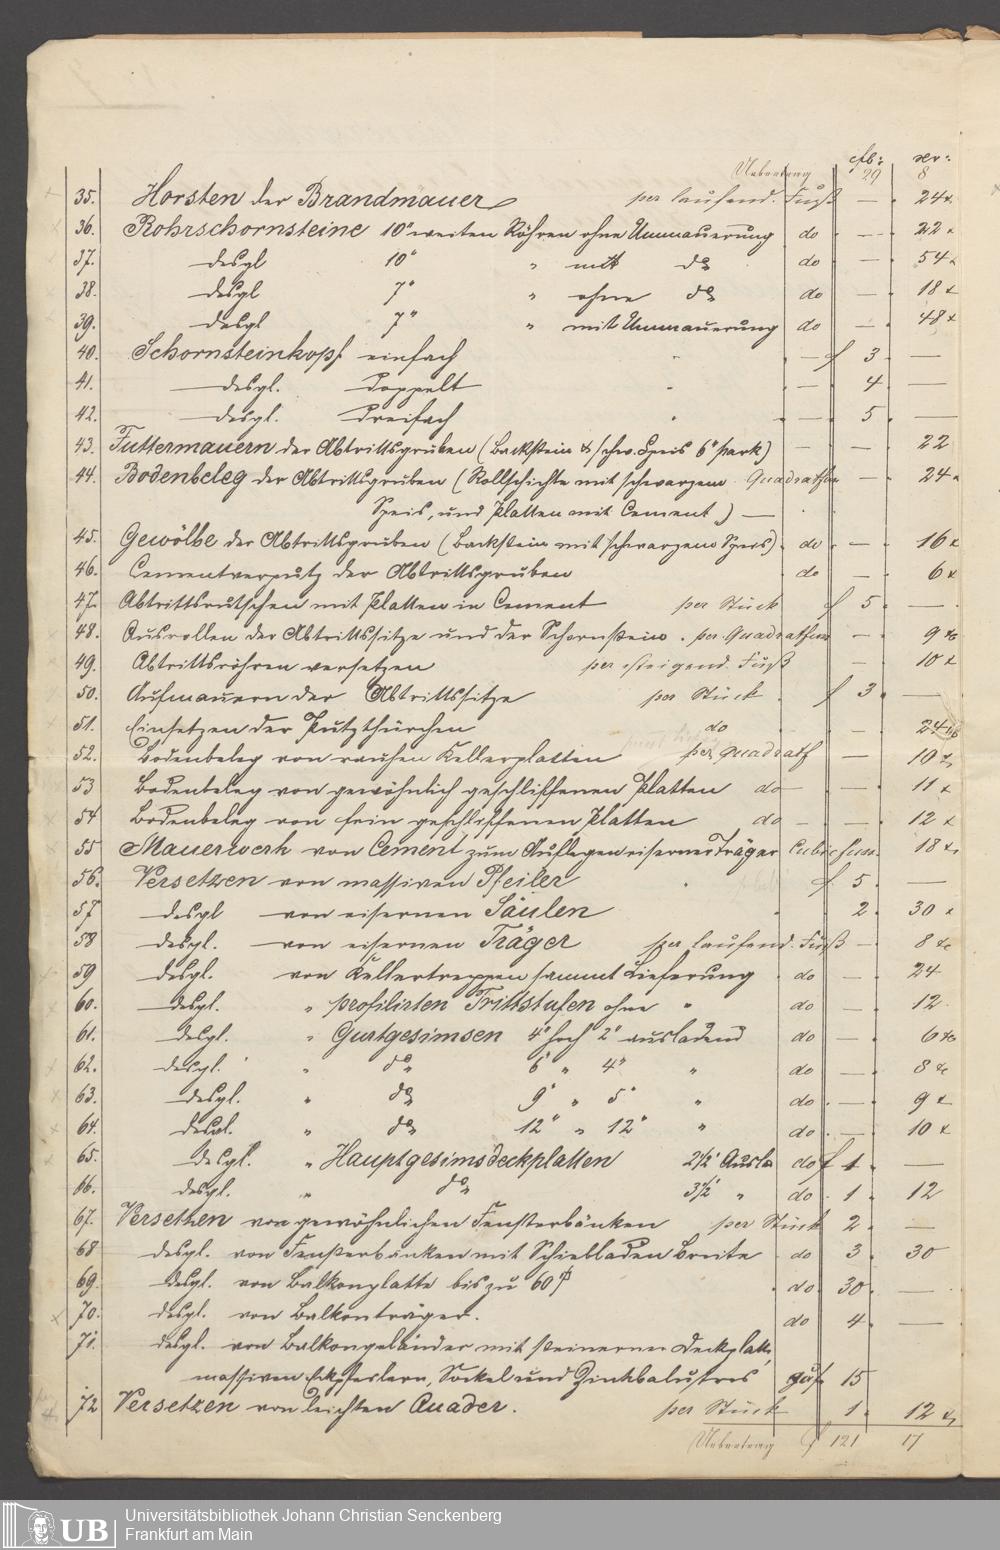 fl: xr:
Uebertrag 29 8
35. Horsten der Brandmauer per laufend. Fuß — 24x
36. Rohrschornsteine 10" weiten Röhren ohne Ummauerung do — 22x
37. desgl 10" " mit do do — 54x
38. desgl 7" " ohne do do — 18x
39. desgl 7" " mit Ummauerung do — 48x
40. Schornsteinkopf einfach " — f 3 —
41. desgl. doppelt " — 4 —
42. desgl. dreifach " — 5 —
43. Futtermauern der Abtrittsgruben (Backstein & schw. Speis 6" stark) — — 22
44. Bodenbeleg der Abtrittsgruben (Rollschichte mit schwarzem Quadratfuß — 24x
Speis, und Platten mit Cement) —
45. Gewölbe der Abtrittsgruben (Backstein mit schwarzem Speis) do — 16x
46. Cementverputz der Abtrittsgruben do — 6x
47. Abtrittsrutschen mit Platten in Cement per Stück f 5 —
48. Ausrollen der Abtrittssitze und der Schornsteine . per Quadratfuß — 9x
49. Abtrittsröhren versetzen per steigend. Fuß — 10x
50. Aufmauern der Abtrittssitze per Stück f 3 —
51. Einsetzen der Putzthürchen do — 24
52. Bodenbeleg von rauhen Kellerplatten per quadratf — 10x
53 Bodenbeleg von gewöhnlich geschliffenen Platten do — — 11x
54 Bodenbeleg von fein geschliffenen Platten do — — 12x
55 Mauerwerk von Cement zum Auflegen eiserner Träger Cubicfuß 18x
56. Versetzen von massiven Pfeiler " f 5 —
57 desgl von eisernen Säulen " 2 30x
58 desgl. von eisernen Träger per laufend. Fuß — 8x
59 desgl. von Kellertreppen sammt Lieferung do — 24
60. desgl. " profilirten Trittstufen ohne " do — 12
61. desgl. " Gurtgesimsen 4" hoch 2" ausladend do — 6x
62. desgl. " do 6 " 4" " do — 8x
63. desgl. " do 9" " 5" " do — 9x
64. desgl. " do 12" " 12" " do — 10x
65. desgl. " Hauptgesimsdeckplatten 2½' Ausla do f 1 —
66. desgl. " do 3½' " do 1 12
67. Versetzen von gewöhnlichen Fensterbänken per Stück 2 —
68 desgl. von Fensterbänken mit Schiebladen Breite do 3 30
69. desgl. von Balkonplatte bis zu 60 do 30 —
70. desgl. von Balkonträger. do 4 —
71. desgl. von Balkongeländer mit steinernen Deckplatt,
massiven Eckpfeilern, Sockel und Zinkbalustres 15
72 Versetzen von leichten Quader. per Stück 1 12x
Uebertrag f 121 17
UB Universitätsbibliothek Johann Christian Senckenberg
Frankfurt am Main